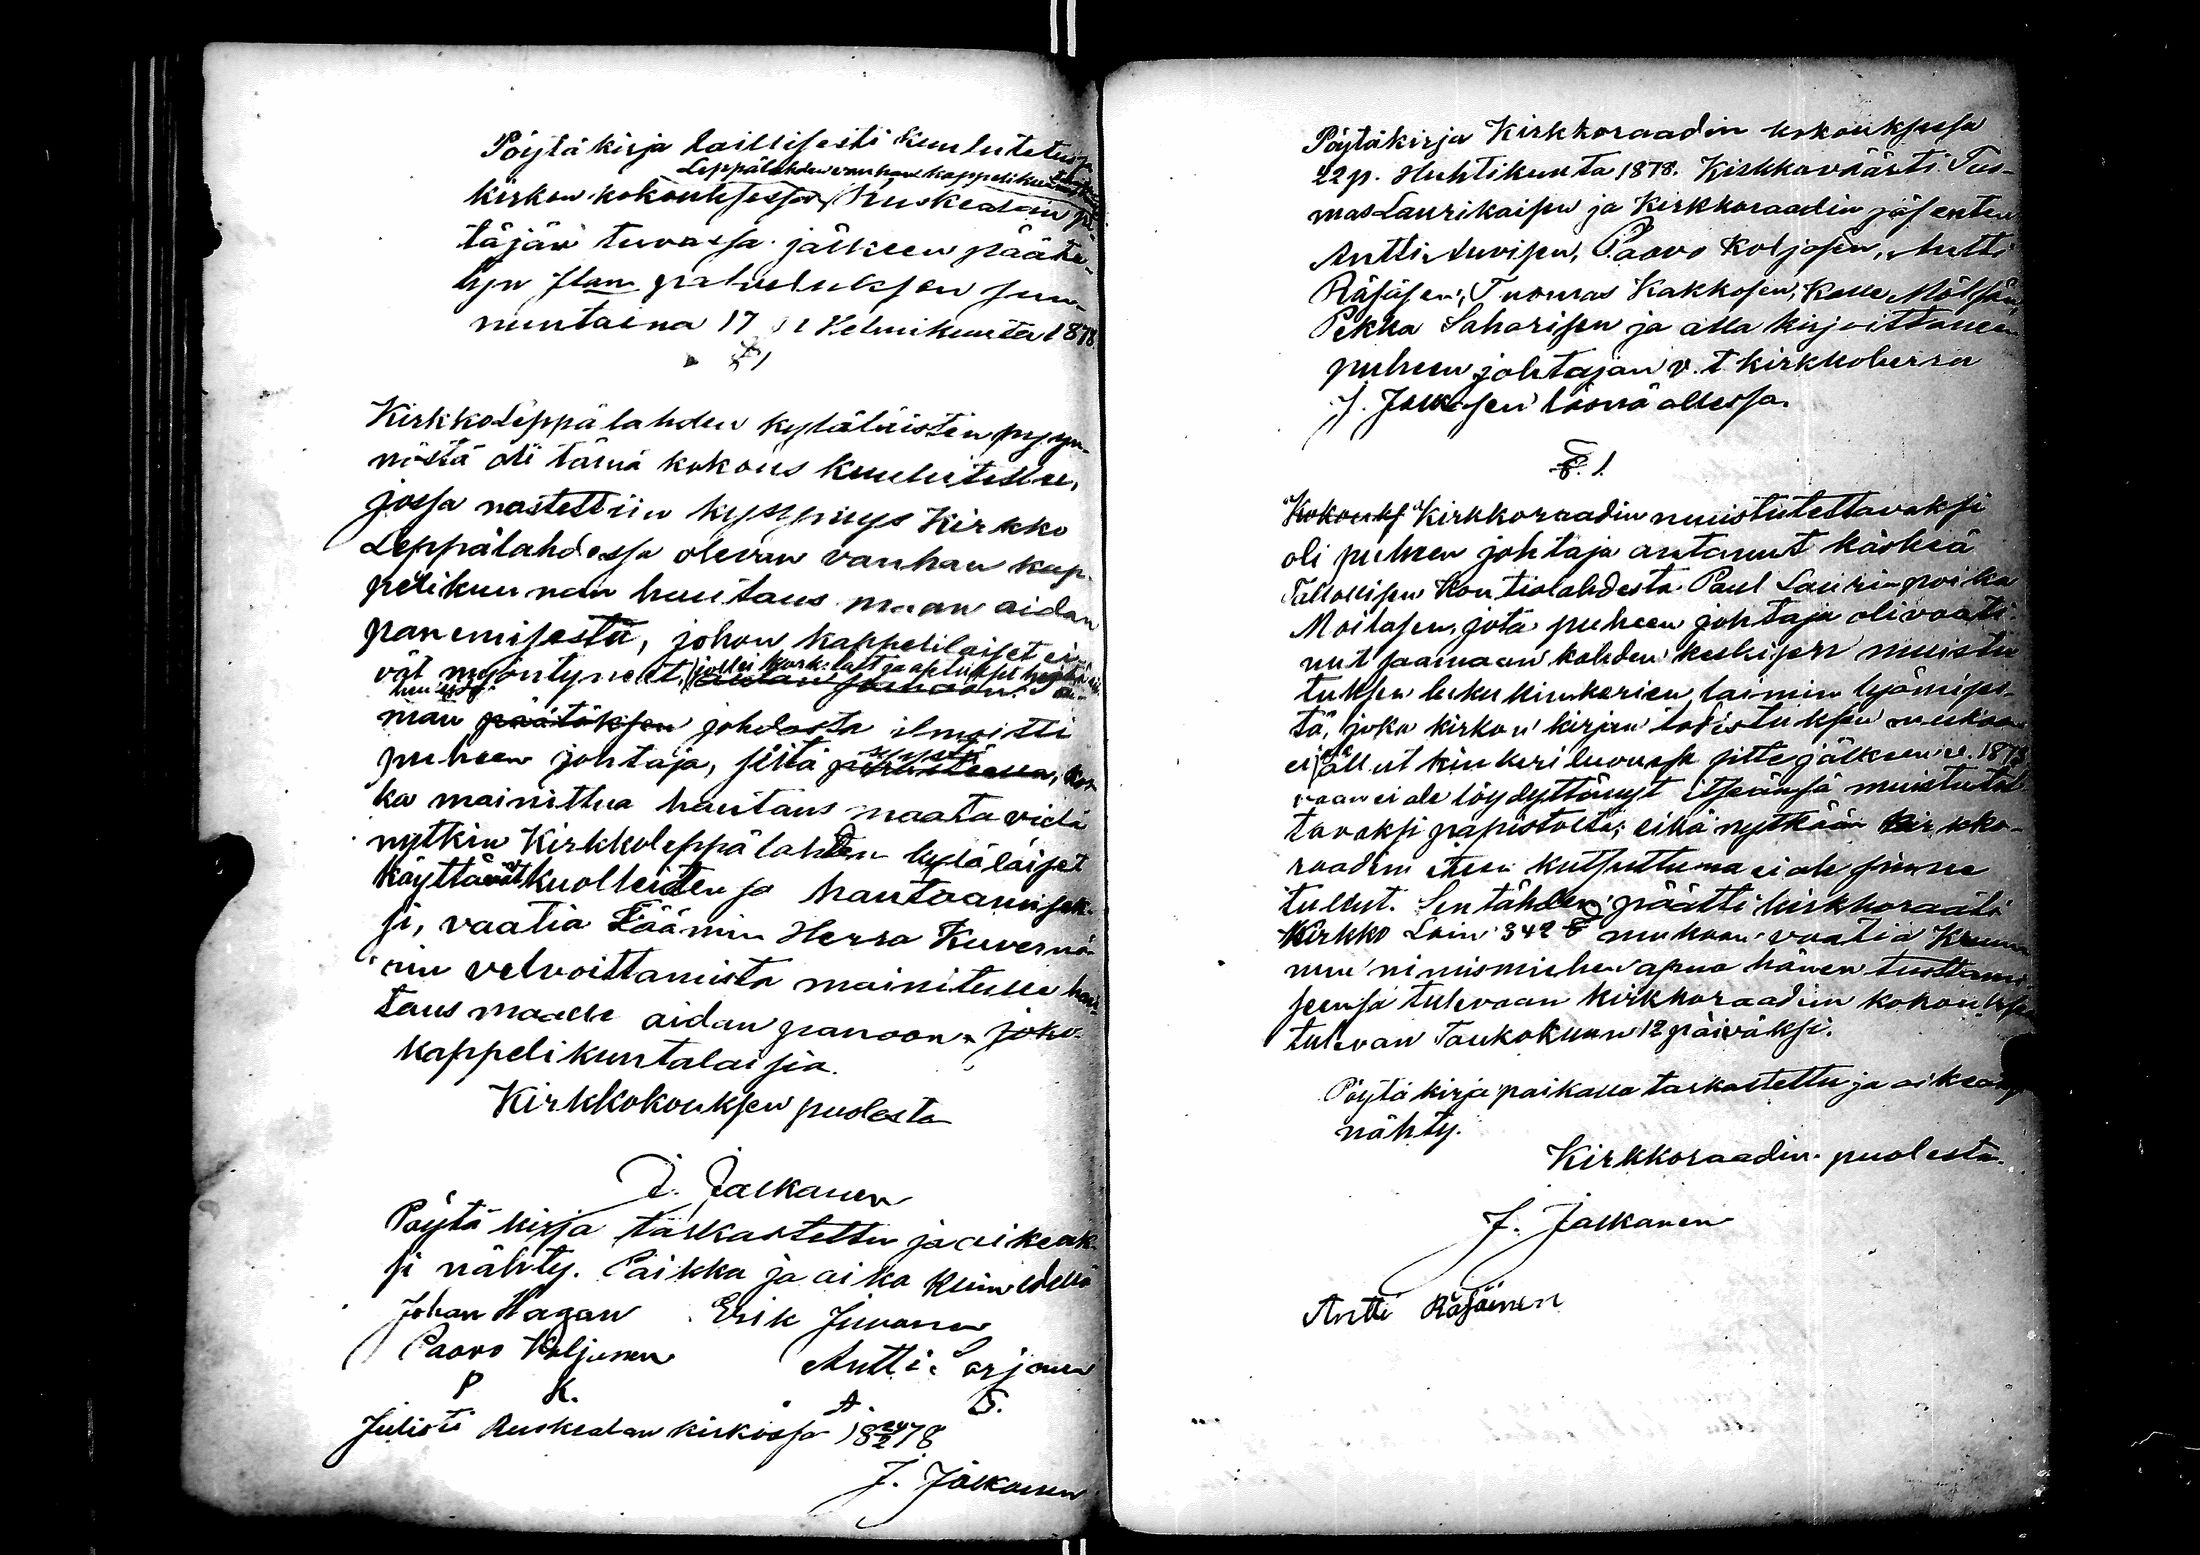 Pöytäkirja laillisesti kuulutetussa
Leppälahden vanhan kappelikunnan
kirkon kokouksessa Ruskealan pi-
täjän tuvassa jälkeen pääte-
tyn Jlan palveluksen sun-
nuntaina 17 Helmikuuta 1878
§ 1
Kirkko Leppälahden kyläläisten pyyn-
nöstä oli tämä kokous kuulutettu,
jossa nostettiin kysymys Kirkko
Leppälahdessa olevan vanhan kap-
pelikunnan hautaus maan aidan
panemisesta, johon kappelilaiset ei-
vät myöntyneet,
man päätöksen johdosta ilmoitti
puheen johtaja, siitä
ka mainittua hautaus maata vielä
nytkin Kirkkoleppälahden kyläläiset
käyttävät kuolleittensa hautaamisek-
si, vaatia Läänin Herra Kuvernö-
rin velvoittamista mainitulle hau-
taus maalle aidan panoon joko
kappelikuntalaisia.
Kirkkokouksen puolesta
J. Jalkanen
Pöytäkirja tarkastettu ja oikeak-
si nähty. Paikka ja aika kuin edellä
Johan Hagan Erik Juvonen
Paavo Koljunen Antti Sorjonen
P K. A. S.
Julisti Ruskealan kirkossa 18 24/2 78
J. Jalkanen
Pöytäkirja Kirkkoraadin kokouksessa
22 p. Huhtikuuta 1878. Kirkkoväärti Tuo-
mas Laurikaisen ja Kirkkoraadin jäsenten
Antti Auvisen, Paavo Koljosen, Antti
Räsäsen, Tuomas Kakkosen, Kalle Mölsän,
Pekka Saharisen ja alla kirjoittaneen
puheen johtajan v. t. kirkkoherra
J. Jalkasen läsnä ollessa.
§. 1.
Kokouks Kirkkoraadin muistutettavaksi
oli puheen johtaja antanut käskeä
Tallollisen Kontiolahdesta Paul Laurinpoika
Moilasen, jota puheen johtaja oli vaati-
nut saamaan kahden keskisen muistu-
tuksen luku kinkerien laimin lyömises-
tä, joka kirkon kirjan todistuksen mukaan
ei ole ollut kinkeri luvussa sitte jälkeen v. 1873
vaan ei ole löydyttänyt itseänsä muistutet-
tavaksi papistolta; eikä nytkään Kirkko-
raadin eteen kutsuttuna ei ole sinne
tullut. Sentähden päätti kirkkoraati
Kirkko Lain 342 § mukaan vaatia Kruu-
nun nimismiehen apua hänen tuottami-
seensa tulevaan kirkkoraadin kokoukseen
tulevan Toukokuun 12 päiväksi.
Pöytäkirja paikalla tarkastettu ja oikeaksi
nähty.
Kirkkoraadin puolesta.
J. Jalkanen
Antti Räsäinen